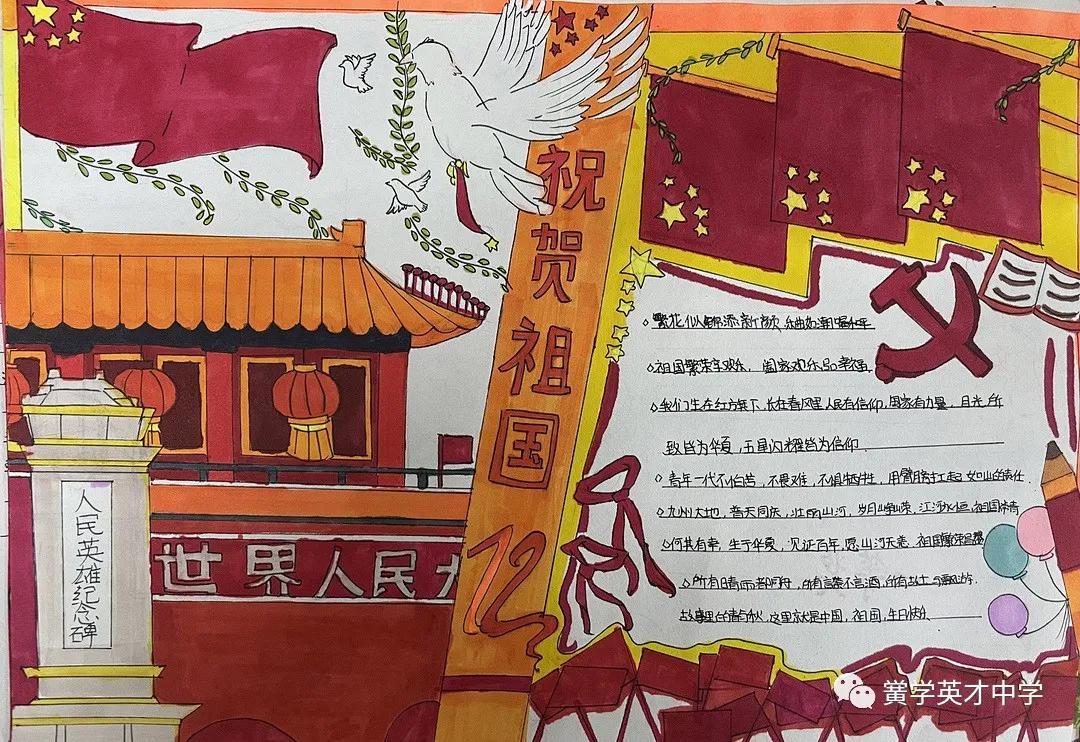 祝贺祖国
人民英雄纪念碑
世界人民大
繁花似锦添新颜
祖国繁荣享欢乐, 国家欢乐品幸福
我们生在红方旗下, 长在春风里人民有信仰, 国家有力量, 目光所
致皆为华夏, 五星闪耀皆为信仰
青年一代不怕苦, 不畏难, 不惧牺牲, 用臂膀扛起如山的责任.
九州大地, 普天同庆, 壮丽山河, 岁月峥嵘, 江河永恒, 祖国常青
何其有幸, 生于华夏, 见证百年, 愿山河无恙, 祖国繁荣昌盛
所有
故事里的春与秋, 这里就是中国, 祖国, 生日快乐
黉学英才中学